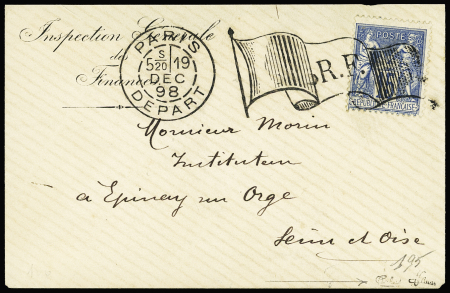 Inspection Générale
des
Finances
PARIS
S
5 20 19
DEC
98
DEPART
R.F.
POSTE
RÉPUBLIQUE FRANÇAISE
Monsieur Morin
Instituteur
à Epinay sur Orge
Seine et Oise
195